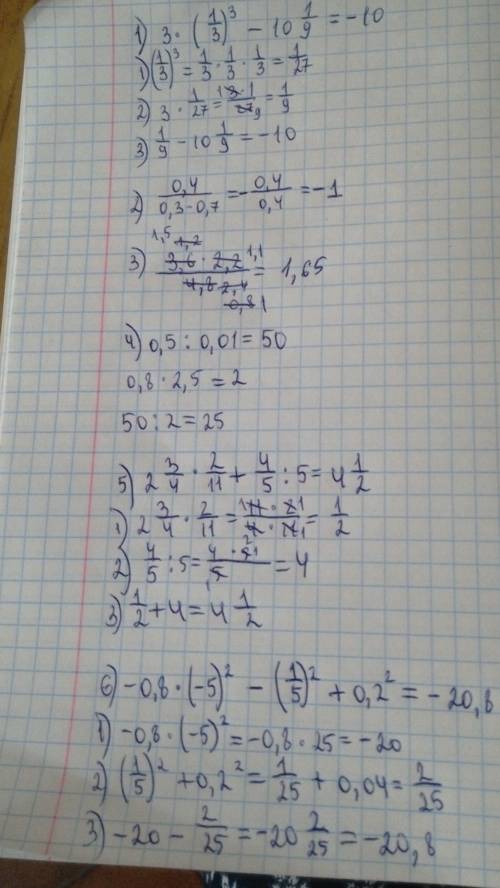 1) 3 · (1/3)³ − 10 1/9 = −10
1) (1/3)³ = 1/3 · 1/3 · 1/3 = 1/27
2) 3 · 1/27 = 3 · 1/27 = 1/9
3) 1/9 − 10 1/9 = −10
2) 0,4/(0,3−0,7) = −0,4/0,4 = −1
1,5 1,2
3) 3,6 · 2,2 1,1 / 4,8 2,4 = 1,65
0,8 1
4) 0,5 : 0,01 = 50
0,8 · 2,5 = 2
50 : 2 = 25
5) 2 3/4 · 2/11 + 4/5 : 5 = 4 1/2
1) 2 3/4 · 2/11 = 11 · 2/4 · 11 = 1/2
2) 4/5 : 5 = 4 · 5/5 = 4
3) 1/2 + 4 = 4 1/2
6) −0,8 · (−5)² − (1/5)² + 0,2² = −20,8
1) −0,8 · (−5)² = −0,8 · 25 = −20
2) (1/5)² + 0,2² = 1/25 + 0,04 = 2/25
3) −20 − 2/25 = −20 2/25 = −20,8